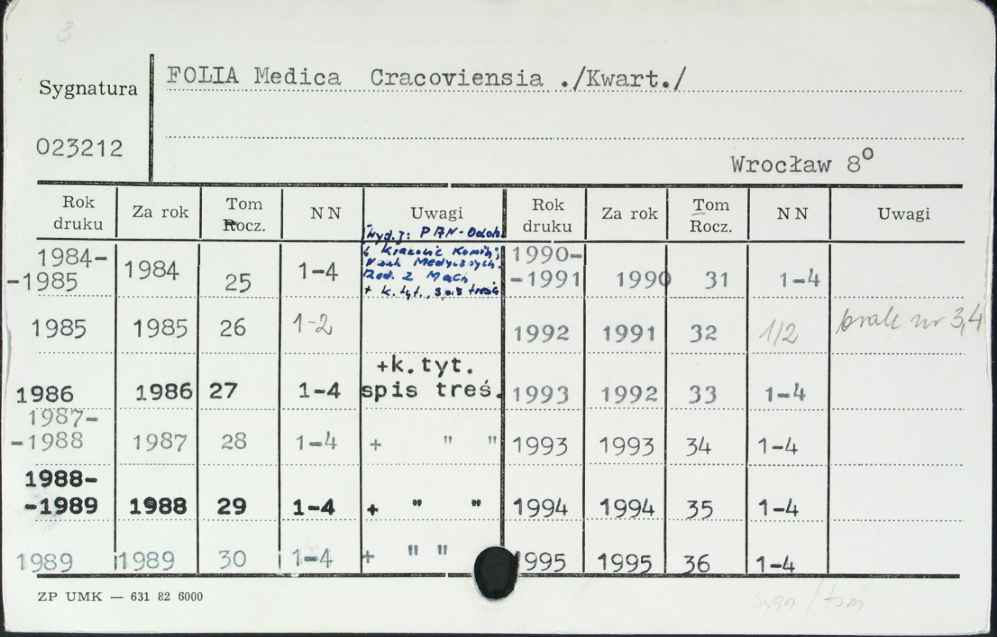 3
FOLIA Medica Cracoviensia ./Kwart./
Sygnatura
023212
Wrocław 8°
Rok druku Za rok Tom Rocz. NN Uwagi Rok druku Za rok Tom Rocz. NN Uwagi
1984-
-1985 1984 25 1-4
Wyd.: PAN-Oddz.
w Krakowie Komis.
Nauk Medycznych.
Red. Z Mach
+ k. tyt., spis treśc
1990-
-1991 1990 31 1-4
1985 1985 26 1-2
1992 1991 32 1/2 brak nr 3,4
1986 1986 27 1-4 +k.tyt.
spis treś.
1993 1992 33 1-4
1987-
-1988 1987 28 1-4 + " "
1993 1993 34 1-4
1988-
-1989 1988 29 1-4 + " "
1994 1994 35 1-4
1989 1989 30 1-4 + " "
1995 1995 36 1-4
ZP UMK — 631 82 6000